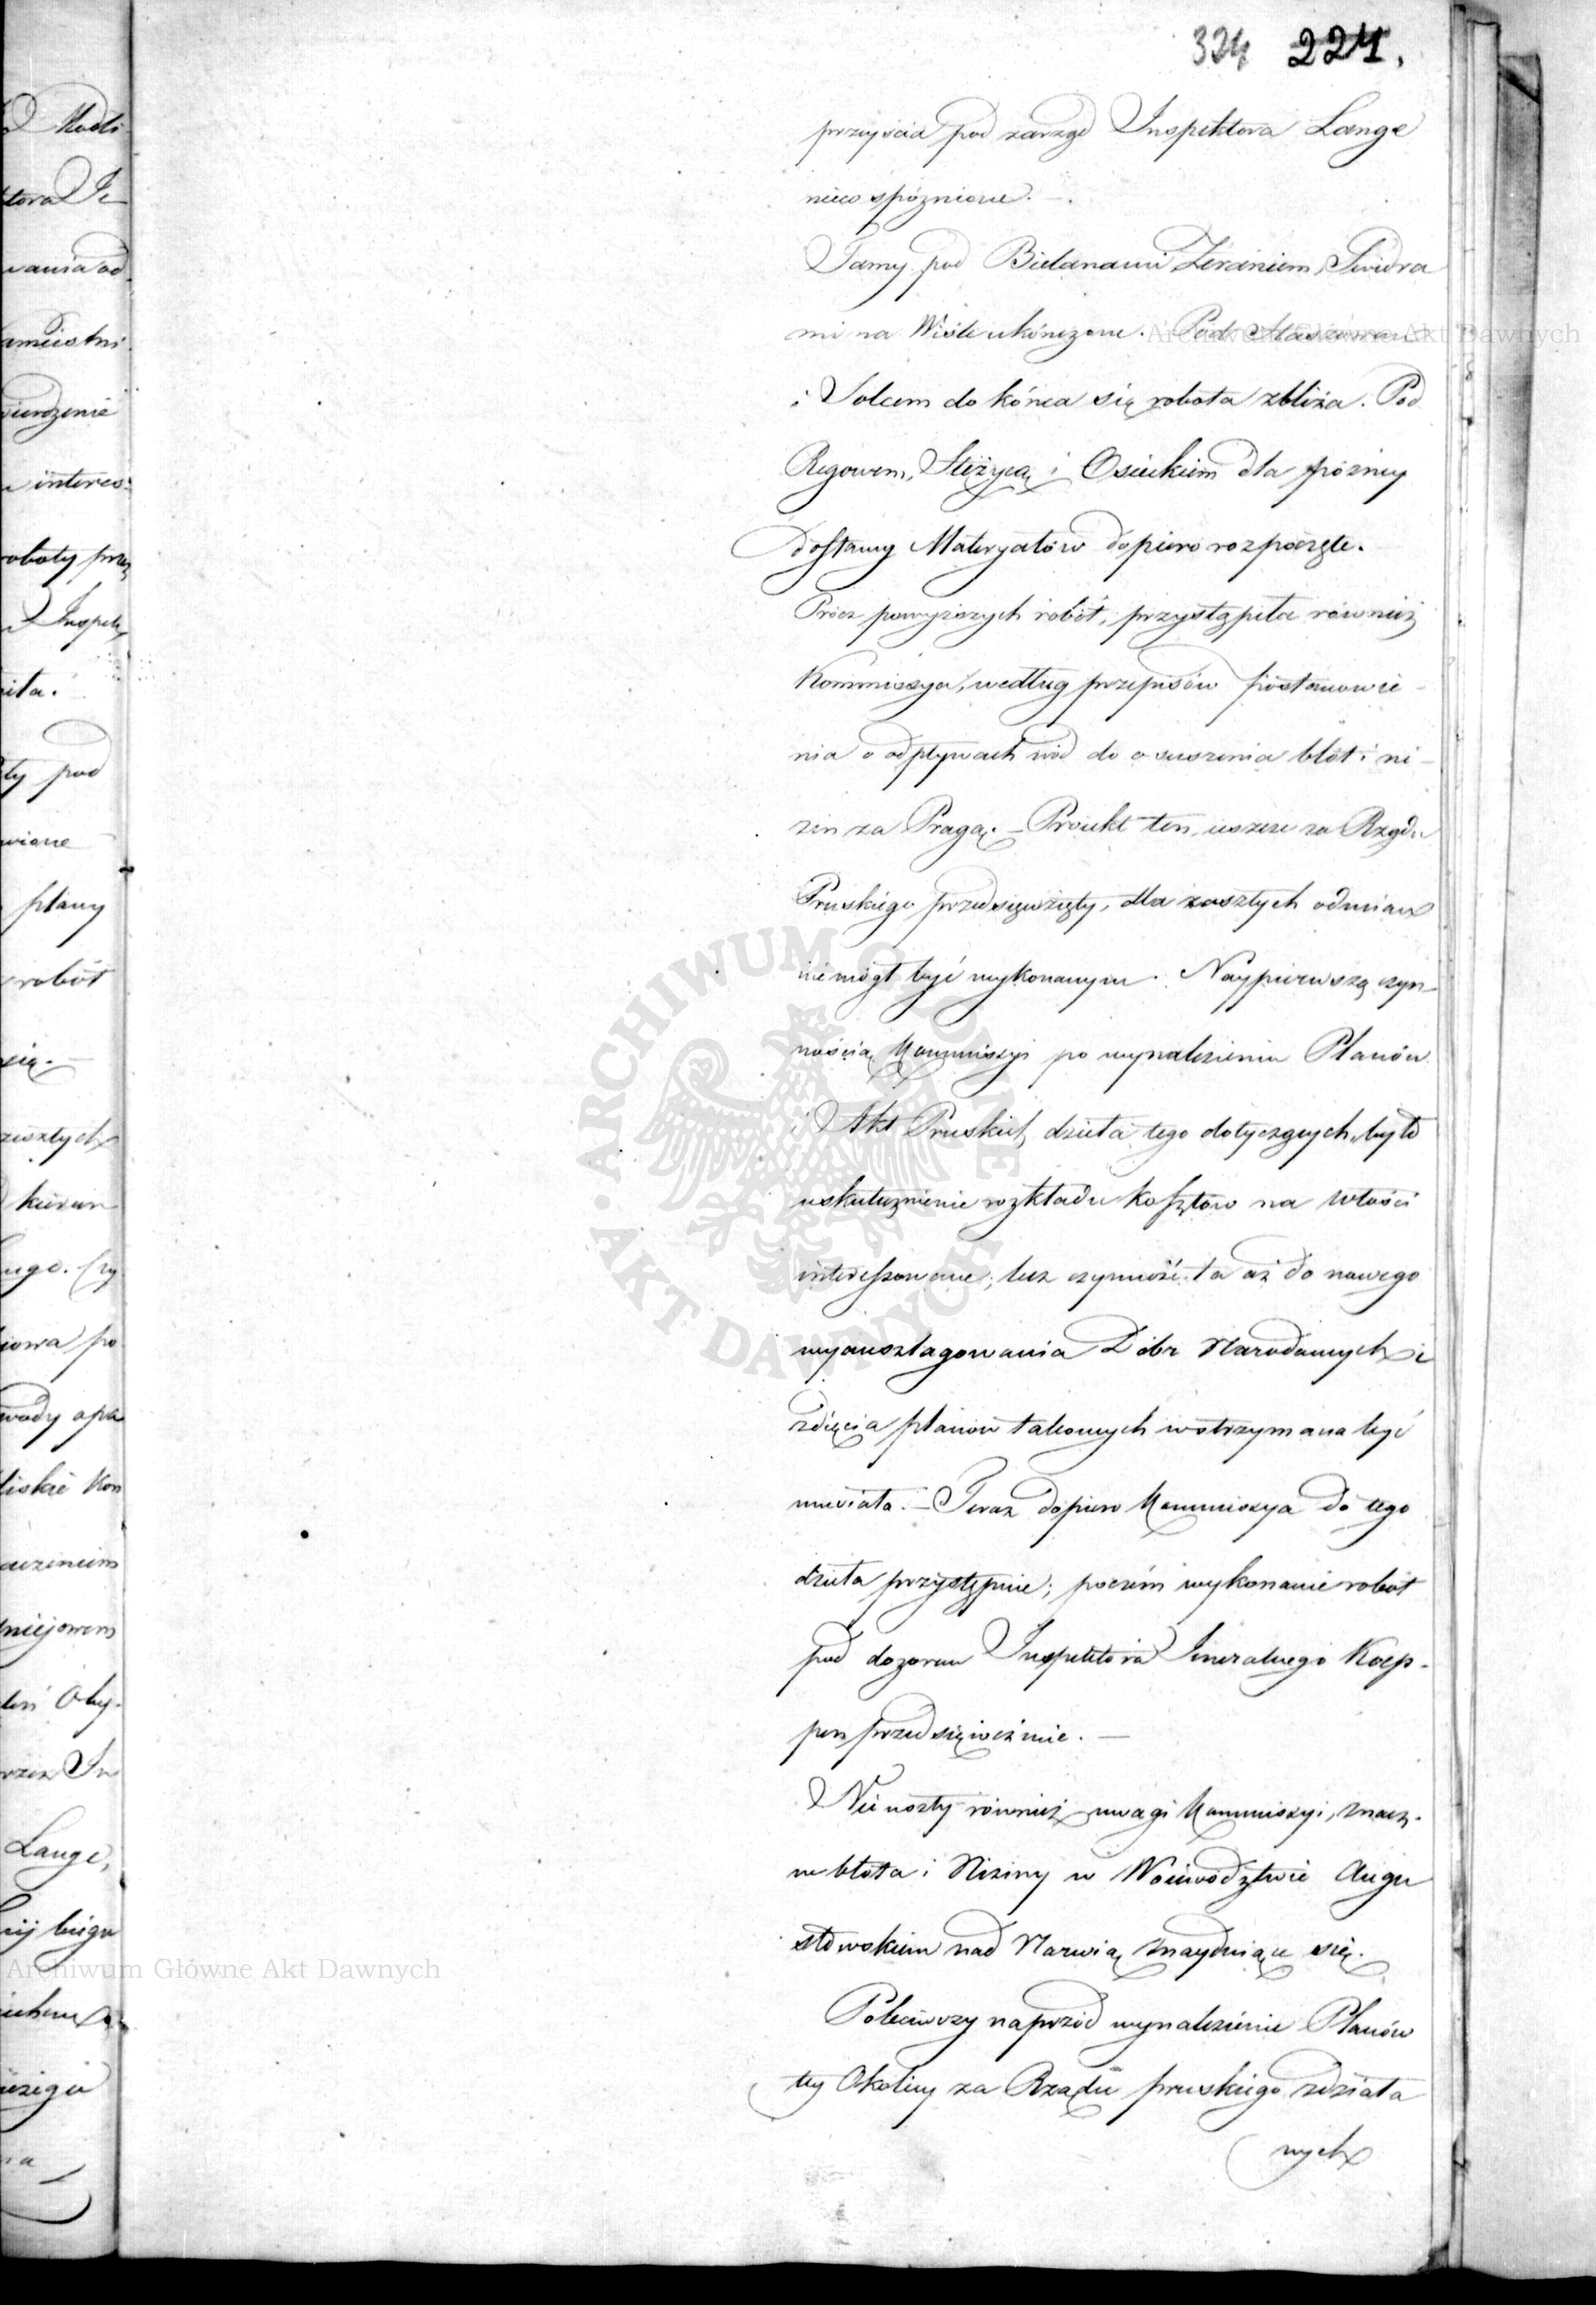 324 224.
przeyścia pod zarząd Inspektora Lange
nieco spóźnione. —.
Tamy pod Bielanami Żeraniem, Świdra
mi na Wiśle ukończone. Pod
i Solcem do końca się robota zbliża. Pod
Regowem, Stężycą i Osieckiem dla późney
dostawy Materyałów dopiero rozpoczęte.
Prócz powyższych robót, przystąpiła również
Kommissya, według przepisów postanowie-
nia o odpływach wód do osuszenia błót i ni-
zin za Pragą. — Proiekt ten ieszcze za Rządu
Pruskiego przedsięwzięty, dla zaszłych odmian
niemógł być wykonanym. Naypierwszą czyn-
nością Kommissyi po wynalezieniu Planów
i Akt Pruskich, dzieła tego dotyczących, było
uskutecznienie rozkładu kosztów na włości
interessowane; lecz czynność ta aż do nowego
wyanszlagowania Dóbr Narodowych i
zdięcia planów takowych wstrzymana być
musiała. — Teraz dopiero Kommissya do tego
dzieła przystępuie; poczém wykonanie robót
pod dozorem Inspektora Jeneralnego Koep-
pen przedsięweźmie. —
Nie uszły również uwagi Kommissyi, znacz-
ne błota i Niziny w Woiewództwie Augu
stowskiem nad Narwią znayduiące się.
Poleciwszy naprzód wynalezienie Planów
tey Okolicy za Rządu pruskiego zdziała
nych
Archiwum Główne Akt Dawnych
Archiwum Główne Akt Dawnych
ARCHIWUM GŁÓWNE · AKT DAWNYCH ·
tora Je
wania od
interes:
roboty przez
Inspek
ty pod
plany
robót
się. —
zeszłych
Lange,